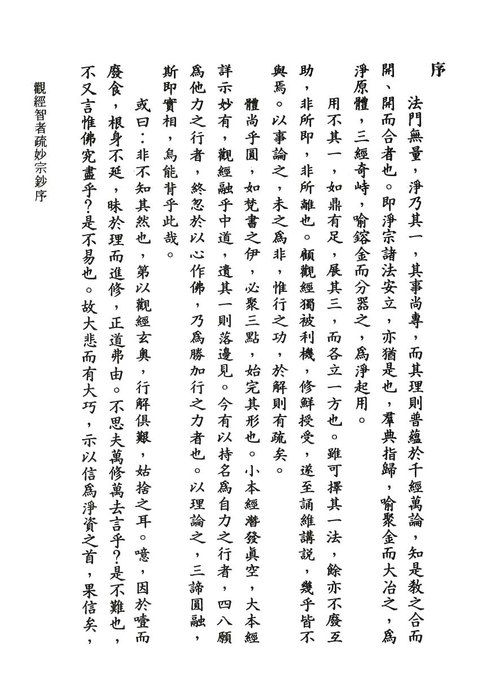 序
法門無量，淨乃其一，其事尚專，而其理則普蘊於千經萬論，知是教之合而
開、開而合者也。即淨宗諸法安立，亦猶是也，羣典指歸，喻聚金而大冶之，為
淨原體，三經奇峙，喻鎔金而分器之，為淨起用。
用不其一，如鼎有足，展其三，而各立一方也。雖可擇其一法，餘亦不廢互
助，非所即，非所離也。顧觀經獨被利機，修鮮授受，遂至誦維講說，幾乎皆不
與焉。以事論之，未之為非，惟行之功，於解則有疏矣。
體尚乎圓，如梵書之伊，必聚三點，始完其形也。小本經潛發眞空，大本經
詳示妙有，觀經融乎中道，遺其一則落邊見。今有以持名為自力之行者，四八願
為他力之行者，終忽於以心作佛，乃為勝加行之力者也。以理論之，三諦圓融，
斯即實相，烏能背乎此哉。
或曰：非不知其然也，第以觀經玄奥，行解俱艱，姑捨之耳。噫，因於噎而
廢食，根身不延，昧於理而進修，正道弗由。不思夫萬修萬去言乎？是不難也，
不又言惟佛究盡乎？是不易也。故大悲而有大巧，示以信為淨資之首，果信矣，
觀經智者疏妙宗鈔序